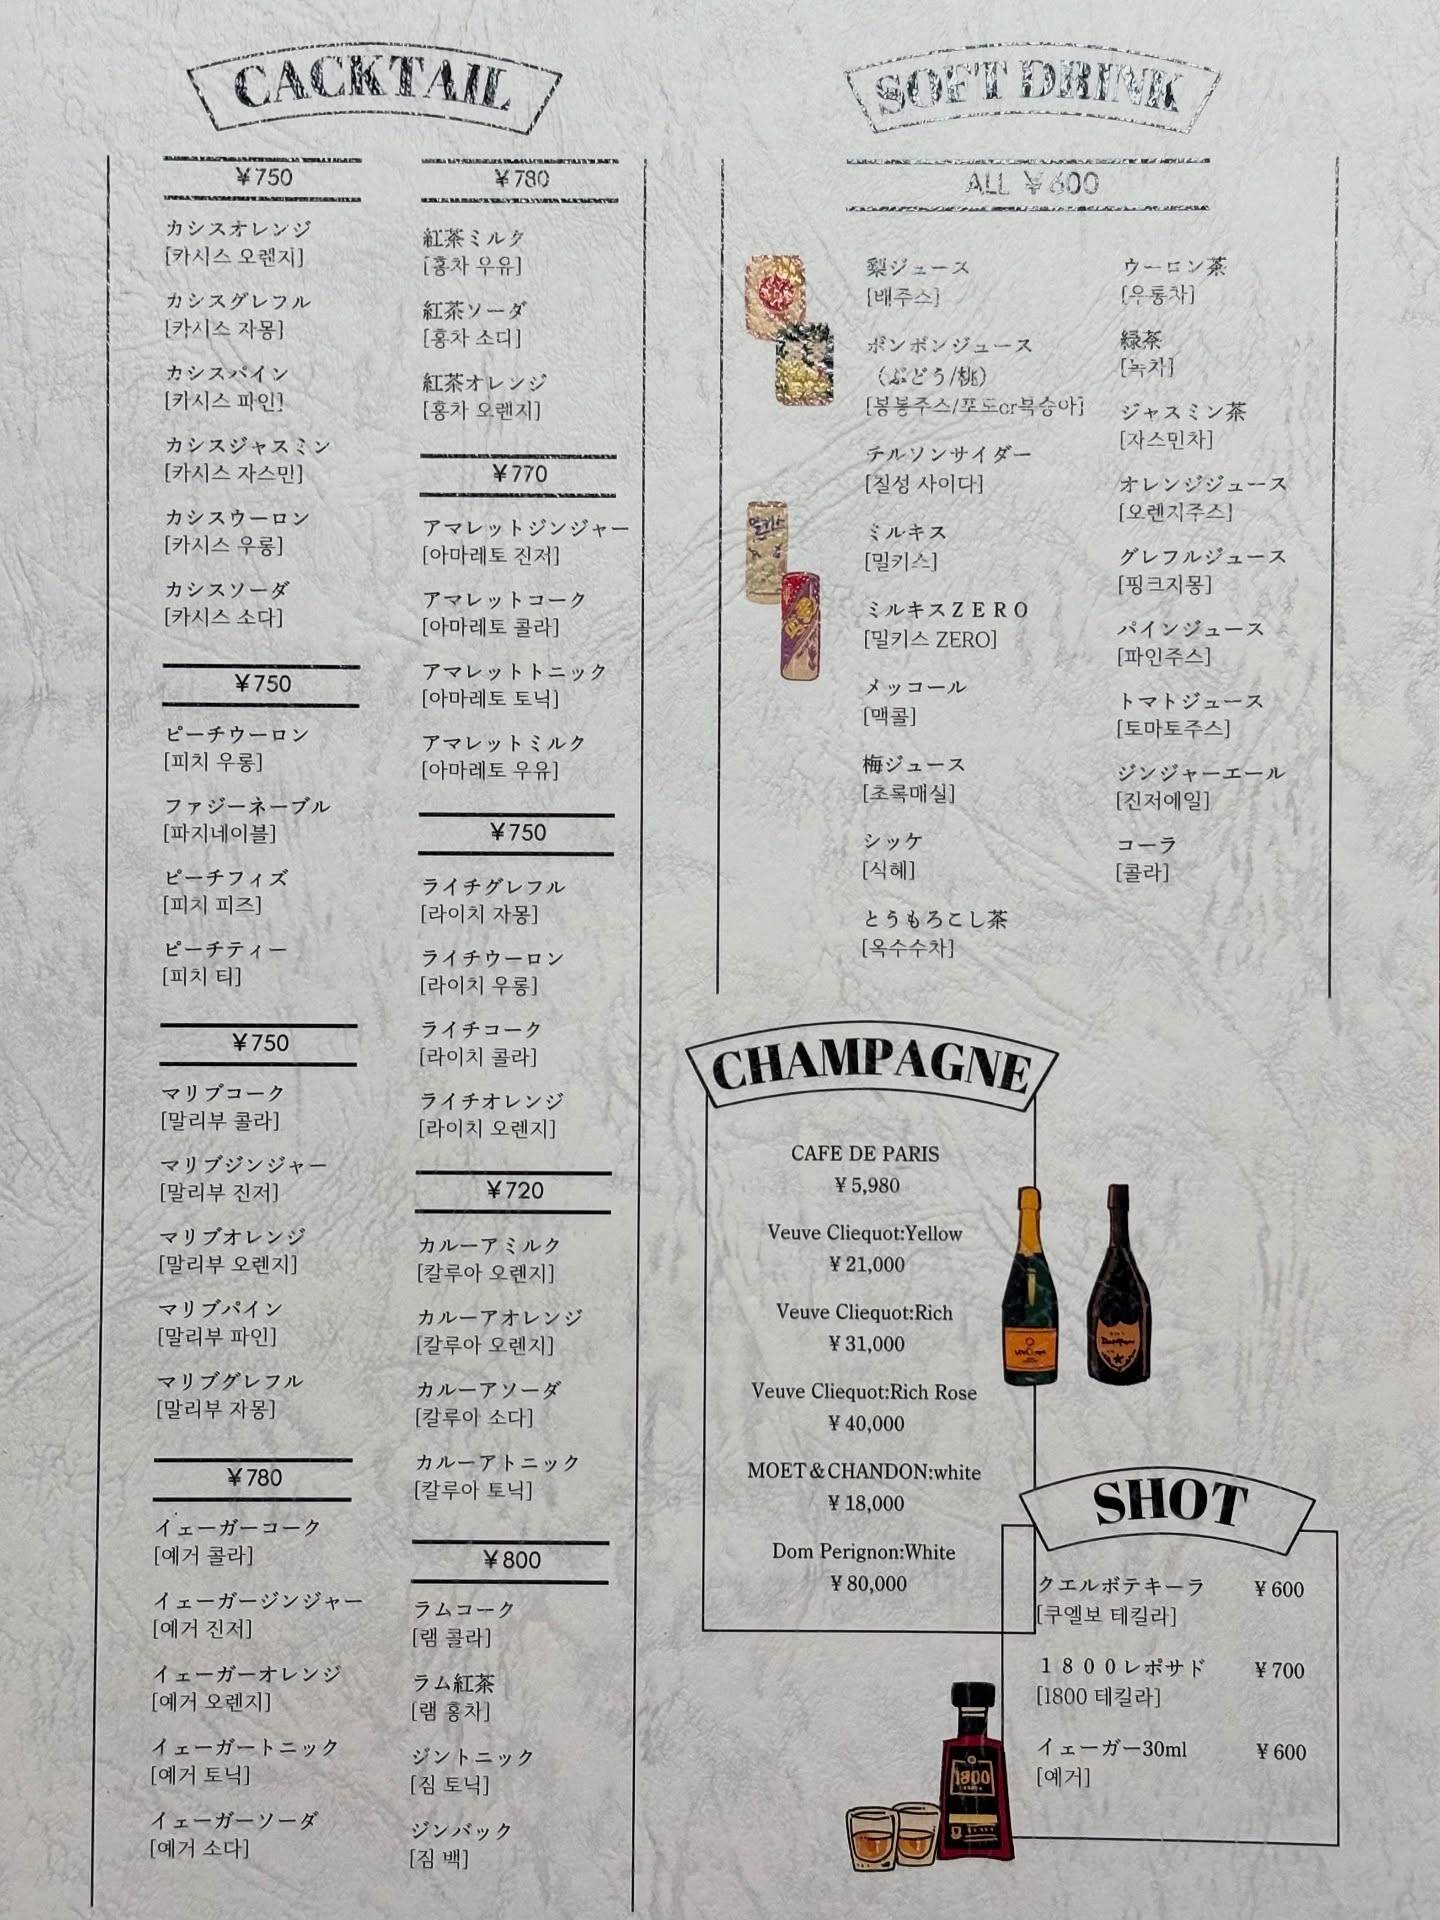 CACKTAIL
¥750
カシスオレンジ
[카시스 오렌지]
カシスグレフル
[카시스 자몽]
カシスパイン
[카시스 파인]
カシスジャスミン
[카시스 자스민]
カシスウーロン
[카시스 우롱]
カシスソーダ
[카시스 소다]
¥750
ピーチウーロン
[피치 우롱]
ファジーネーブル
[파지네이블]
ピーチフィズ
[피치 피즈]
ピーチティー
[피치 티]
¥750
マリブコーク
[말리부 콜라]
マリブジンジャー
[말리부 진저]
マリブオレンジ
[말리부 오렌지]
マリブパイン
[말리부 파인]
マリブグレフル
[말리부 자몽]
¥780
イェーガーコーク
[예거 콜라]
イェーガージンジャー
[예거 진저]
イェーガーオレンジ
[예거 오렌지]
イェーガートニック
[예거 토닉]
イェーガーソーダ
[예거 소다]
¥780
紅茶ミルク
[홍차 우유]
紅茶ソーダ
[홍차 소디]
紅茶オレンジ
[홍차 오렌지]
¥770
アマレットジンジャー
[아마레토 진저]
アマレットコーク
[아마레토 콜라]
アマレットトニック
[아마레토 토닉]
アマレットミルク
[아마레토 우유]
¥750
ライチグレフル
[라이치 자몽]
ライチウーロン
[라이치 우롱]
ライチコーク
[라이치 콜라]
ライチオレンジ
[라이치 오렌지]
¥720
カルーアミルク
[칼루아 오렌지]
カルーアオレンジ
[칼루아 오렌지]
カルーアソーダ
[칼루아 소다]
カルーアトニック
[칼루아 토닉]
¥800
ラムコーク
[램 콜라]
ラム紅茶
[램 홍차]
ジントニック
[짐 토닉]
ジンバック
[짐 백]
SOFT DRINK
ALL ¥600
梨ジュース
[배주스]
ボンボンジュース
（ぶどう/桃）
[봉봉주스/포도or복숭아]
チルソンサイダー
[칠성 사이다]
ミルキス
[밀키스]
ミルキスＺＥＲＯ
[밀키스 ZERO]
メッコール
[맥콜]
梅ジュース
[초록매실]
シッケ
[식혜]
とうもろこし茶
[옥수수차]
ウーロン茶
[우롱차]
緑茶
[녹차]
ジャスミン茶
[자스민차]
オレンジジュース
[오렌지주스]
グレフルジュース
[핑크지몽]
パインジュース
[파인주스]
トマトジュース
[토마토주스]
ジンジャーエール
[진저에일]
コーラ
[콜라]
CHAMPAGNE
CAFE DE PARIS
¥5,980
Veuve Cliequot:Yellow
¥21,000
Veuve Cliequot:Rich
¥31,000
Veuve Cliequot:Rich Rose
¥40,000
MOET＆CHANDON:white
¥18,000
Dom Perignon:White
¥80,000
SHOT
クエルボテキーラ ¥600
[쿠엘보 테킬라]
１８００レポサド ¥700
[1800 테킬라]
イェーガー30ml ¥600
[예거]
1800